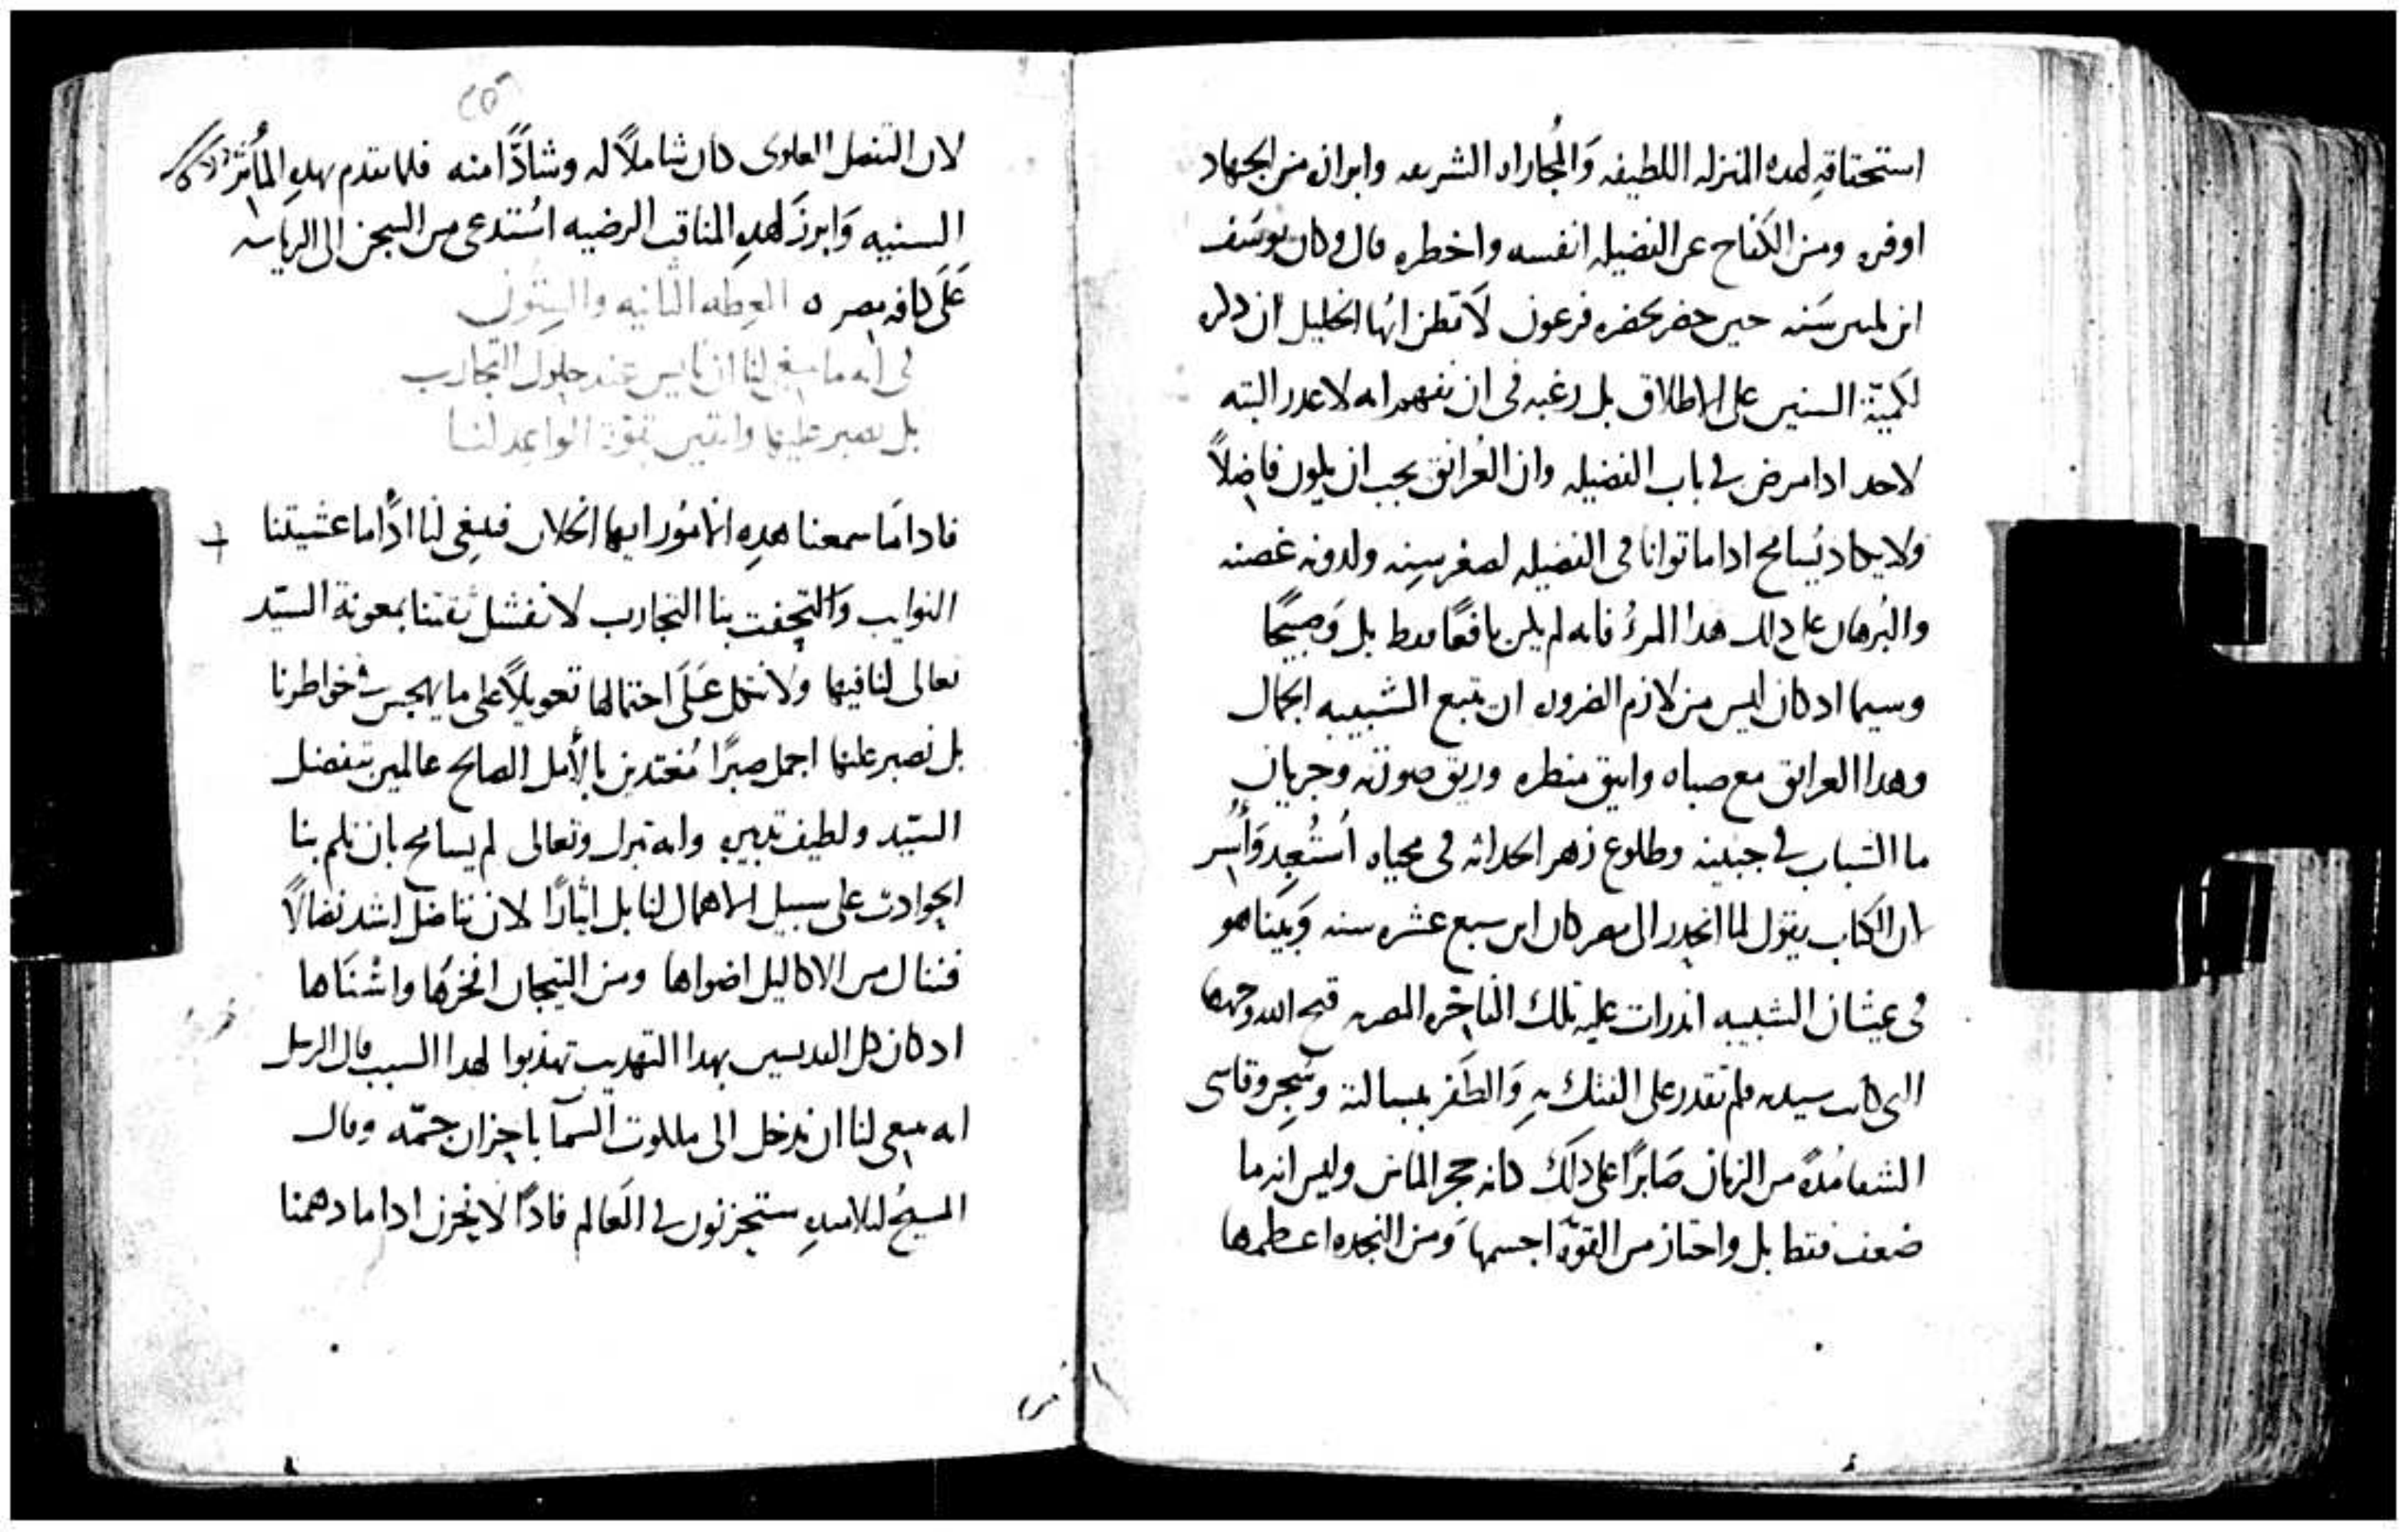 استحقاقه لهده المنزله اللطيفه وَالمُجاراه الشريفه وابراز من الجهاد
اوفره ومن الكفاح عن الفضيله انفسه واخطره قال وكان يوسُف
ابن ثلثين سَنه حين حضر بحضره فرعون لَا تظن ايُها الخليل ان دكره
لكميّة السنين على الاطلاق بل رغبه في ان نفهم انه لا عدر البته
لاحد ادا مرض في باب الفضيله وان الغُرانق يجب ان يكون فاضِلاً
ولا يكاد يُسامح اداما توانا في الفضيله لصغر سِنه ولدونه غصنه
والبُرهان على دلك هدا المرءُ فانه لم يكن يافعًا فقط بل وَصبيًحا
وسيما اد كان ليس من لازم الضروره ان تتبع الشبيبه الجمال
وهدا الغرانق مع صباه وانيق منظره وريق صورته وجريان
ما الشباب في جبينه وطلوع زهر الحداثه في محياه اُستُعبِد وَأُسُر
لان الكتاب يقول لما انحدر الى مصر كان ابن سبع عشره سنه وَبيَنا هو
في عيثان الشبيبه اندرات عليه تلك الفاجَره المصريه قبح الله وجهها
التي كانت سيدته فلم تقدر على الفتك بهِ وَالظَفر ببسالته وسُجِن وقاسى
الشقا مُدهً من الزمان صَابرًا على دلَك كانه حجر الماس وليس انه ما
ضعف فقط بل واحتاز من القوّه اجسمها وَمن النجده اعظمها
لان التفضل العلوى كان شاملاً له وشادًّا منه فلما تقدم بهدهِ المأثُر
السنيه وَابرزَ لهدهِ المناقب الرضيه اسُتدعى من السجن الى الرياسه
عَلَى كافه مصر ه العظه الثانيه والستون
في انه ما ينبغي لنا ان نايس عند حلول التجارب
بل نصبر عليها واثقين بقوة الواعد لنا
فاداما سمعنا هدهِ الامُور ايها الخلان فينبغي لنا ادًا ما عشيتنا
النوايب وَالتحفت بنا التجارب لا نفشل ثقتنا بمعونة السيّد
تعالى لنا فيها ولا نتكل عَلَى احتمالها تعويلاً على ما يهجس في خواطرنا
بل نصبر عليها اجمل صبرًا مُغتدين بالأمل الصالح عالمين بتفضل
السيّد ولطيف تدبيره وانه تبرك وتعالى لم يسامح بان تلم بنا
الحوادث على سبيل الاهمال لنا بل ايثارًا لان نناضل اشد نضالاً
فننال من الاكاليل اضواها ومن التيجان افخرهُا واسْنَاها
اد كان كل القديسين بهدا التهديب تهدبوا لهدا السبب قال الرسل
انه ينبغي لنا ان ندخل الى ملكوت السما باحزان جمّه وقال
المسيحُ لتلاميدهِ ستحزنون في العَالم فادًا لا نحزن اداما دهمنا